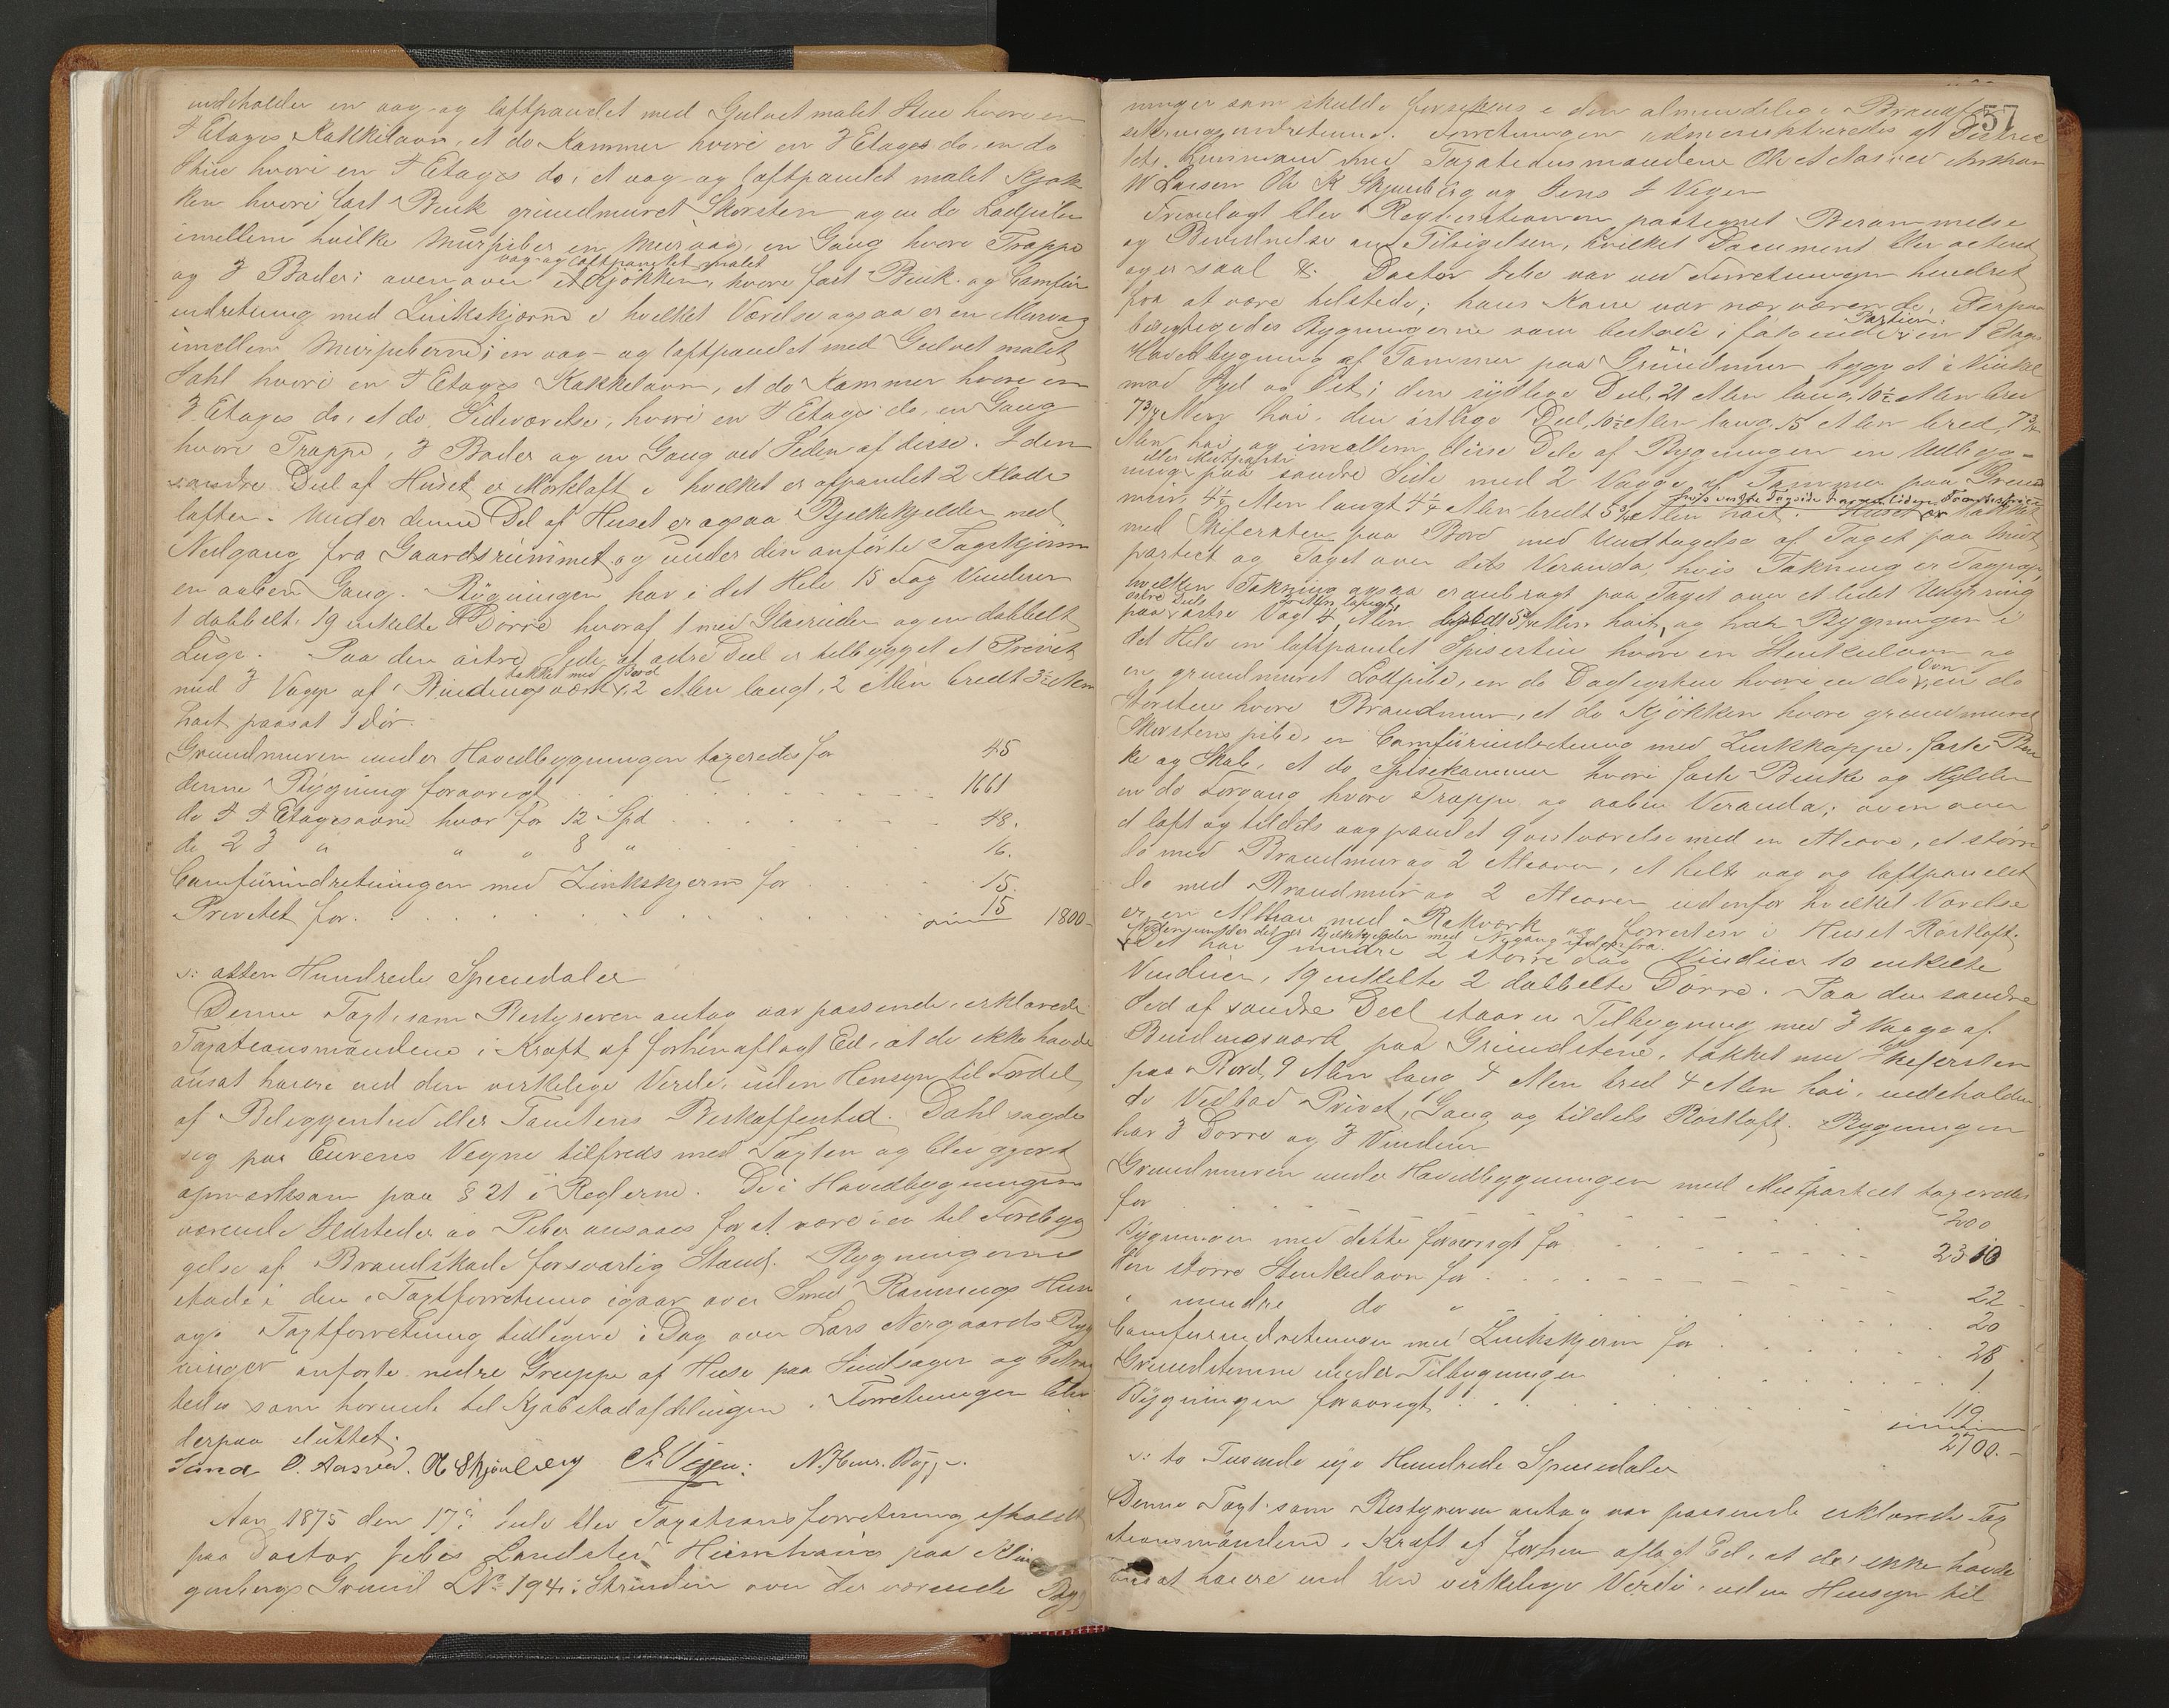 indeholder en væg- og loftpanelet med Gulvet malet Stue hvori en
4 Etages Kakkelovn, et do Kammer hvori en 3 Etages do, en do
Stue hvori en 4 Etages do, et væg- og loftpanelet malet Kjøk
ken hvori fast Bænk grundmuret Skorsten og en do Lodpibe
imellem hvilke Murpiber en Murvæg, en Gang hvori Trappe
og 3 Boder; ovenover et væg- og loftpanelet malet Kjøkken, hvori fast Bænk og Comfur
indretning med Zinkskjærm i hvilket Værelse ogsaa er en Murvæg
imellem Murpiberne; en væg- og loftpanelet med Gulvet malet
Sahl hvori en 4 Etages Kakkelovn, et do Kammer hvori en
3 Etages do, et do Sideværelse, hvori en 4 Etages do, en Gang
hvori Trappe, 3 Boder og en Gang ved Siden af disse. I den
søndre Deel af Huset er Mørkloft i hvilket er afpanelet 2 Klæde
lofter. Under denne Del af Huset er ogsaa Bjelkekjelder med
Nedgang fra Gaardsrummet og under den anførte Tagskjærm
en aaben Gang. Bygningen har i det Hele 15 Fag Vinduer
1 dobbelt, 19 enkelte Dørre hvoraf 1 med Glasruder og en dobbelt
Luge. Paa den østre Side af østre Deel er tilbygget et Privet
med 3 Vægge af Bindingsværk, takket med Bord, 2 Alen langt, 2 Alen bredt 3½ Alen
høit paasat 1 Dør.
Grundmuren under Hovedbygningen taxeredes for 45
denne Bygning forøvrigt 1661
do 4 4 Etagesovne hver for 12 Spd 48.
do 2 3 " " " 8 " 16.
Comfurindretningen med Zinkskjerm for 15.
Privetet for 15 1800-
s: atten Hundrede Speciedaler
Denne Taxt, som Bestyreren antog var passende, erklærede
Taxationsmændene i Kraft af forhen aflagt Ed, at de ikke havde
ansat høiere end den virkelige Værdi, uden Hensyn til Fordel
af Beliggenhed eller Tomtens Beskaffenhed. Dahl sagde
sig paa Eierens Vegne tilfreds med Taxten og blev gjort
opmærksom paa § 21 i Reglerne. De i Hovedbygningen
værende Ildsteder og Piber ansaaes for at være i en til Forebyg
gelse af Brandskade forsvarlig Stand. Bygningerne
stode i den i Taxtforretning igaar over Smed Rannings Huse
og i Taxtforretning tidligere i Dag over Lars Nergaards Byg
ninger anførte nedre Gruppe af Huse paa Sindsager og betrag
tedes som hørende til Kjøbstadafdelingen. Forretningen blev
derpaa sluttet.
O. Aasved. O K Skjønberg J. Vegen. N. Henr. Bügge.
Aar 1875 den 17de Juli blev Taxationsforretning afholdt
paa Doctor Jebes Landsted Heimhaug paa Klin
genbergs Grund LNo 194 i Strinden over der værende Byg
57
ninger som skulde forsikres i den almindelige Brandfor
sikringsindretning. Forretningen administreredes af Distric
tets Lensmand med Taxationsmændene Ole Aasved
W Larsen Ole K Skjønberg og Jens J Vegen
Fremlagt blev Requisitionen paategnet Berammelse
og Bevidnelse om Tilsigelsen, hvilket Document blev acteret
og er saal &: Doctor Jebe var ved Forretningen hindret
fra at være tilstede; hans Kone var nærværende. Derpaa
besigtigedes Bygningerne som bestode i følgende Partier: en 1 Etages
Hovedbygning af Tømmer paa Grundmur bygget i Vinkel
mod Syd og Øst; den sydlige Deel 21 Alen lang, 10½ Alen bred
7¾ Alen høi, den østlige Deel, 10½ Alen lang 15 Alen bred, 7¾
Alen høi og imellem disse Dele af Bygningen en Udbyg-
ning eller Midtparti paa søndre Side med 2 Vægge af Tømmer paa Grund
mur, 4½ Alen langt 4½ Alen bredt 5¾ Alen høit. Huset er takket
med Skifersten paa Bord med Undtagelse af Taget paa Midt
partiet og Taget over dets Veranda, hvis Takning er Tagpap,
hvilken Takning ogsaa er anbragt paa Taget over et lidet Udspring
paa østre Væg 4 Alen bredt 5¾ Alen høit, og har Bygningen i
det Hele en loftpanelet Spisestue hvori en Stenkulovn og
en grundmuret Lodpibe, en do Dagligstue hvori en do Ovn, en do
Storstue hvori Brandmur, et do Kjøkken hvori grundmuret
Skorstenspibe, en Comfurindretning med Zinkkappe, faste Bæn
ke og Skab, et do Spisekammer hvori faste Bænke og Hylder
en do Forgang hvori Trappe og aaben Veranda; ovenover
et loft og tildels vægpanelet Gjestværelse med en Alcove, et større
do med Brandmur og 2 Alcover, et helt væg og loftpanelet
do med Brandmur og 2 Alcover udenfor hvilket Værelse
er en Althan med Rækværk og forresten i Huset Røstloft;
Nedenunder det er Bjelkekjelder med Nedgang udenfra.
Det har 9 mindre 2 større Fag Vinduer 10 enkelte
Vinduer, 19 enkelte 2 dobbelte Dørre. Paa den søndre
Side af søndre Deel staar en Tilbygning med 3 Vægge af
Bindingsværk paa Grundstene, takket med Skifersten
paa Bord, 9 Alen lang 4 Alen bred 4 Alen høi, indeholden
de Vedbod Privet, Gang og tildels Røstloft. Bygningen
har 3 Dørre og 3 Vinduer
Grundmuren under Hovedbygningen med Midtpartiet taxeredes
for 200
Bygningen med dette forøvrigt for 2310
den større Stenkulovn for 22
" mindre do " 20
Comfurindretningen med Zinkskjerm for 28
Grundstenene under Tilbygningen 1
Bygningen forøvrigt 119
2700.-
s: to Tusinde syv Hundrede Speciedaler
Denne Taxt, som Bestyreren antog var passende erklærede Tax
ationsmændene i Kraft af forhen aflagt Ed, at de ikke havde
ansat høiere end den virkelige Værdi, uden Hensyn til